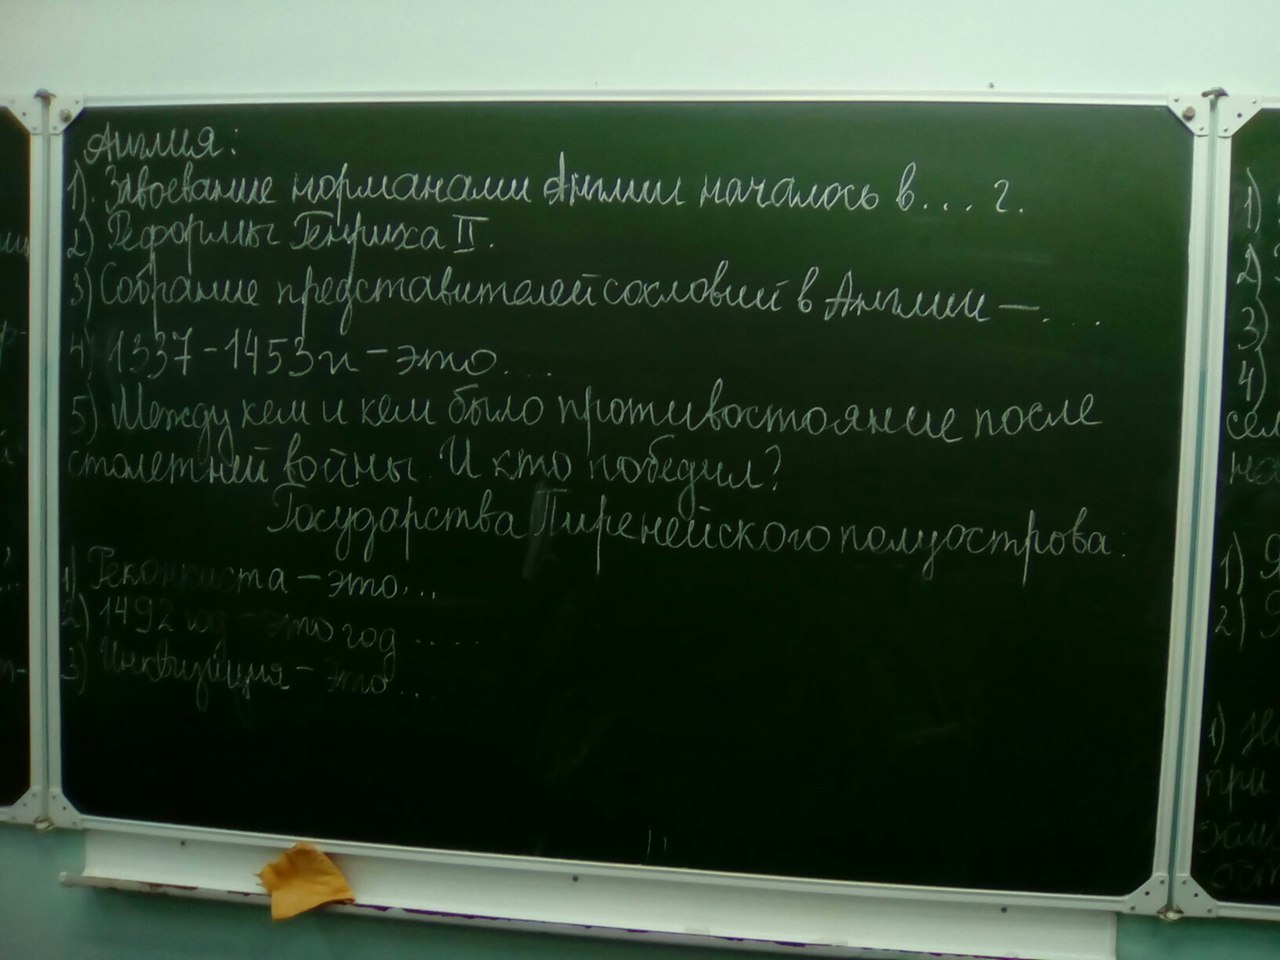 Англия:
1). Завоевание норманами Англии началось в... г.
2) Реформы Генриха II.
3) Собрание представителей сословий в Англии — ....
4) 1337-1453гг - это...
5) Между кем и кем было противостояние после
столетней войны. И кто победил?
Государства Пиренейского полуострова:
1) Реконкиста - это...
2) 1492 год - это год .....
3) Инквизиция - это ...
1)
2)
3)
4)
сел
1)
2)
1)
при